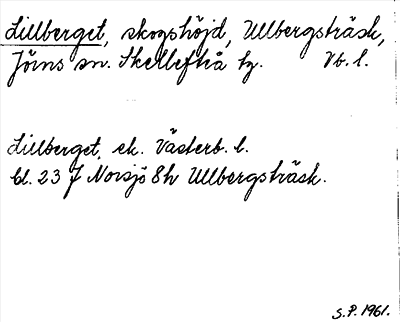 Lillberget, skogshöjd, Ullbergsträsk,
Jörns sn. Skellefteå tg. Vb. l.
Lillberget, ek. Västerb. l.
bl. 23 J Norsjö 8h Ullbergsträsk.
S.P. 1961.